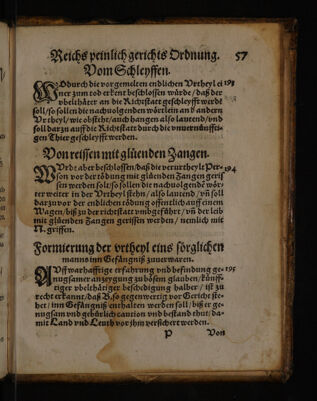 Reichs peinlich gerichts Ordnung. 57
Vom Schleyffen.
WOdurch die vorgemeltem endlichen Vrtheyl ei 193
ner zum tod erkent beschlossen würde / daß der
vbelthäter an die Richtstatt geschleyfft werdē
soll / so sollen die nachuolgenden wörtlein an b andern
Vrtheyl / wie obsteht / auch hangen also lautend / vnd
soll darzu auff die Richtstatt durch die vnuernünffti-
gen Thier geschleyfft werden.
Von reissen mit glüenden Zangen.
WVrdt aber beschlossen / daß die verurtheylt Per- 194
son vor der tödung mit glüenden Zangen geris
sen werden solt / so sollen die nachuolgendē wör-
ter weiter in der Vrtheyl stehn / also lautend / vn̄ soll
darzu vor der endlichen tödung öffentlich auff einem
Wagen / biß zu der richtstatt vmbgeführt / vn̄ der leib
mit glüenden Zangen gerissen werden / nemlich mit
N. griffen.
Formierung der vrtheyl eins sörglichen
manns inn Gefängniß zuuerwaren.
AVff warhafftige erfahrung vnd befindung ge- 195
nugsamer anzeygung zu bösem glauben / künff-
tiger vbelthätiger beschedigung halber / ist zu
recht erkant / daß B, so gegenwertig vor Gericht ste-
het / inn Gefängniß enthalten werden soll / biß er ge-
nugsam vnd gebürlich caution vnd bestand thut / da-
mit Land vnd Leuth vor jhm versichert werden.
P Von